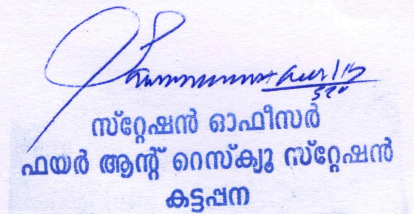 സ്റ്റേഷൻ ഓഫീസർ
ഫയർ ആന്റ് റെസ്ക്യൂ സ്റ്റേഷൻ
കട്ടപ്പന